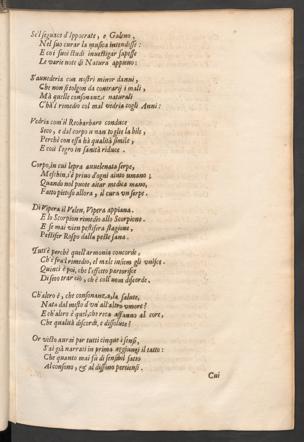 Se'l seguace d'Ippocrate, e Galeno,
Nel suo curar la musica intendesse:
E coi suoi studi inuestigar sapesse
Le varie note di Natura appieno:
S'auuederia con nostri minor danni,
Che non si tolgon da contrarij i mali,
Mà quelle consonanze naturali
C'hà'l remedio col mal vedria cogli Anni:
Vedria com'il Reobarbaro conduce
Seco, e dal corpo uman toglie la bile,
Perchè con essa hà qualità simile,
E così l'egro in sanità riduce.
Corpo, in cui lepra auuelenata serpe,
Meschin, s'è priuo d'ogni aiuto umano;
Quando nol puote aitar medica mano,
Fatto pietoso allora, il cura vn serpe.
Di Vipera il Velen, Vipera appiana.
E lo Scorpion rimedio allo Scorpione.
E se mai vien pestifera stagione,
Pestifer Rospo dalla peste sana.
Tutt'è perchè quell'armonia concorde,
Ch'è frà'l remedio, el male insiem gli vnisce
Quinci è poi, che l'effetto partorisce
Di seco trar ciò, che è coll'mon discorde.
Ch'altro è, che consonanza, la salute,
Nata dal misto d'vn all'altro vmore?
E ch'altro è quel, che reca affanno al core,
Che qualità discordi, e dissolute?
Or vesto aurai pur tutti cinque i sensi,
S'ai già narrati in prima aggiungi il tatto:
Che quanto mai fù di sensibil fatto
Al consono, & al dissono pertiensi.
Cui